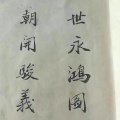 世永鴻圖
朝開駿義